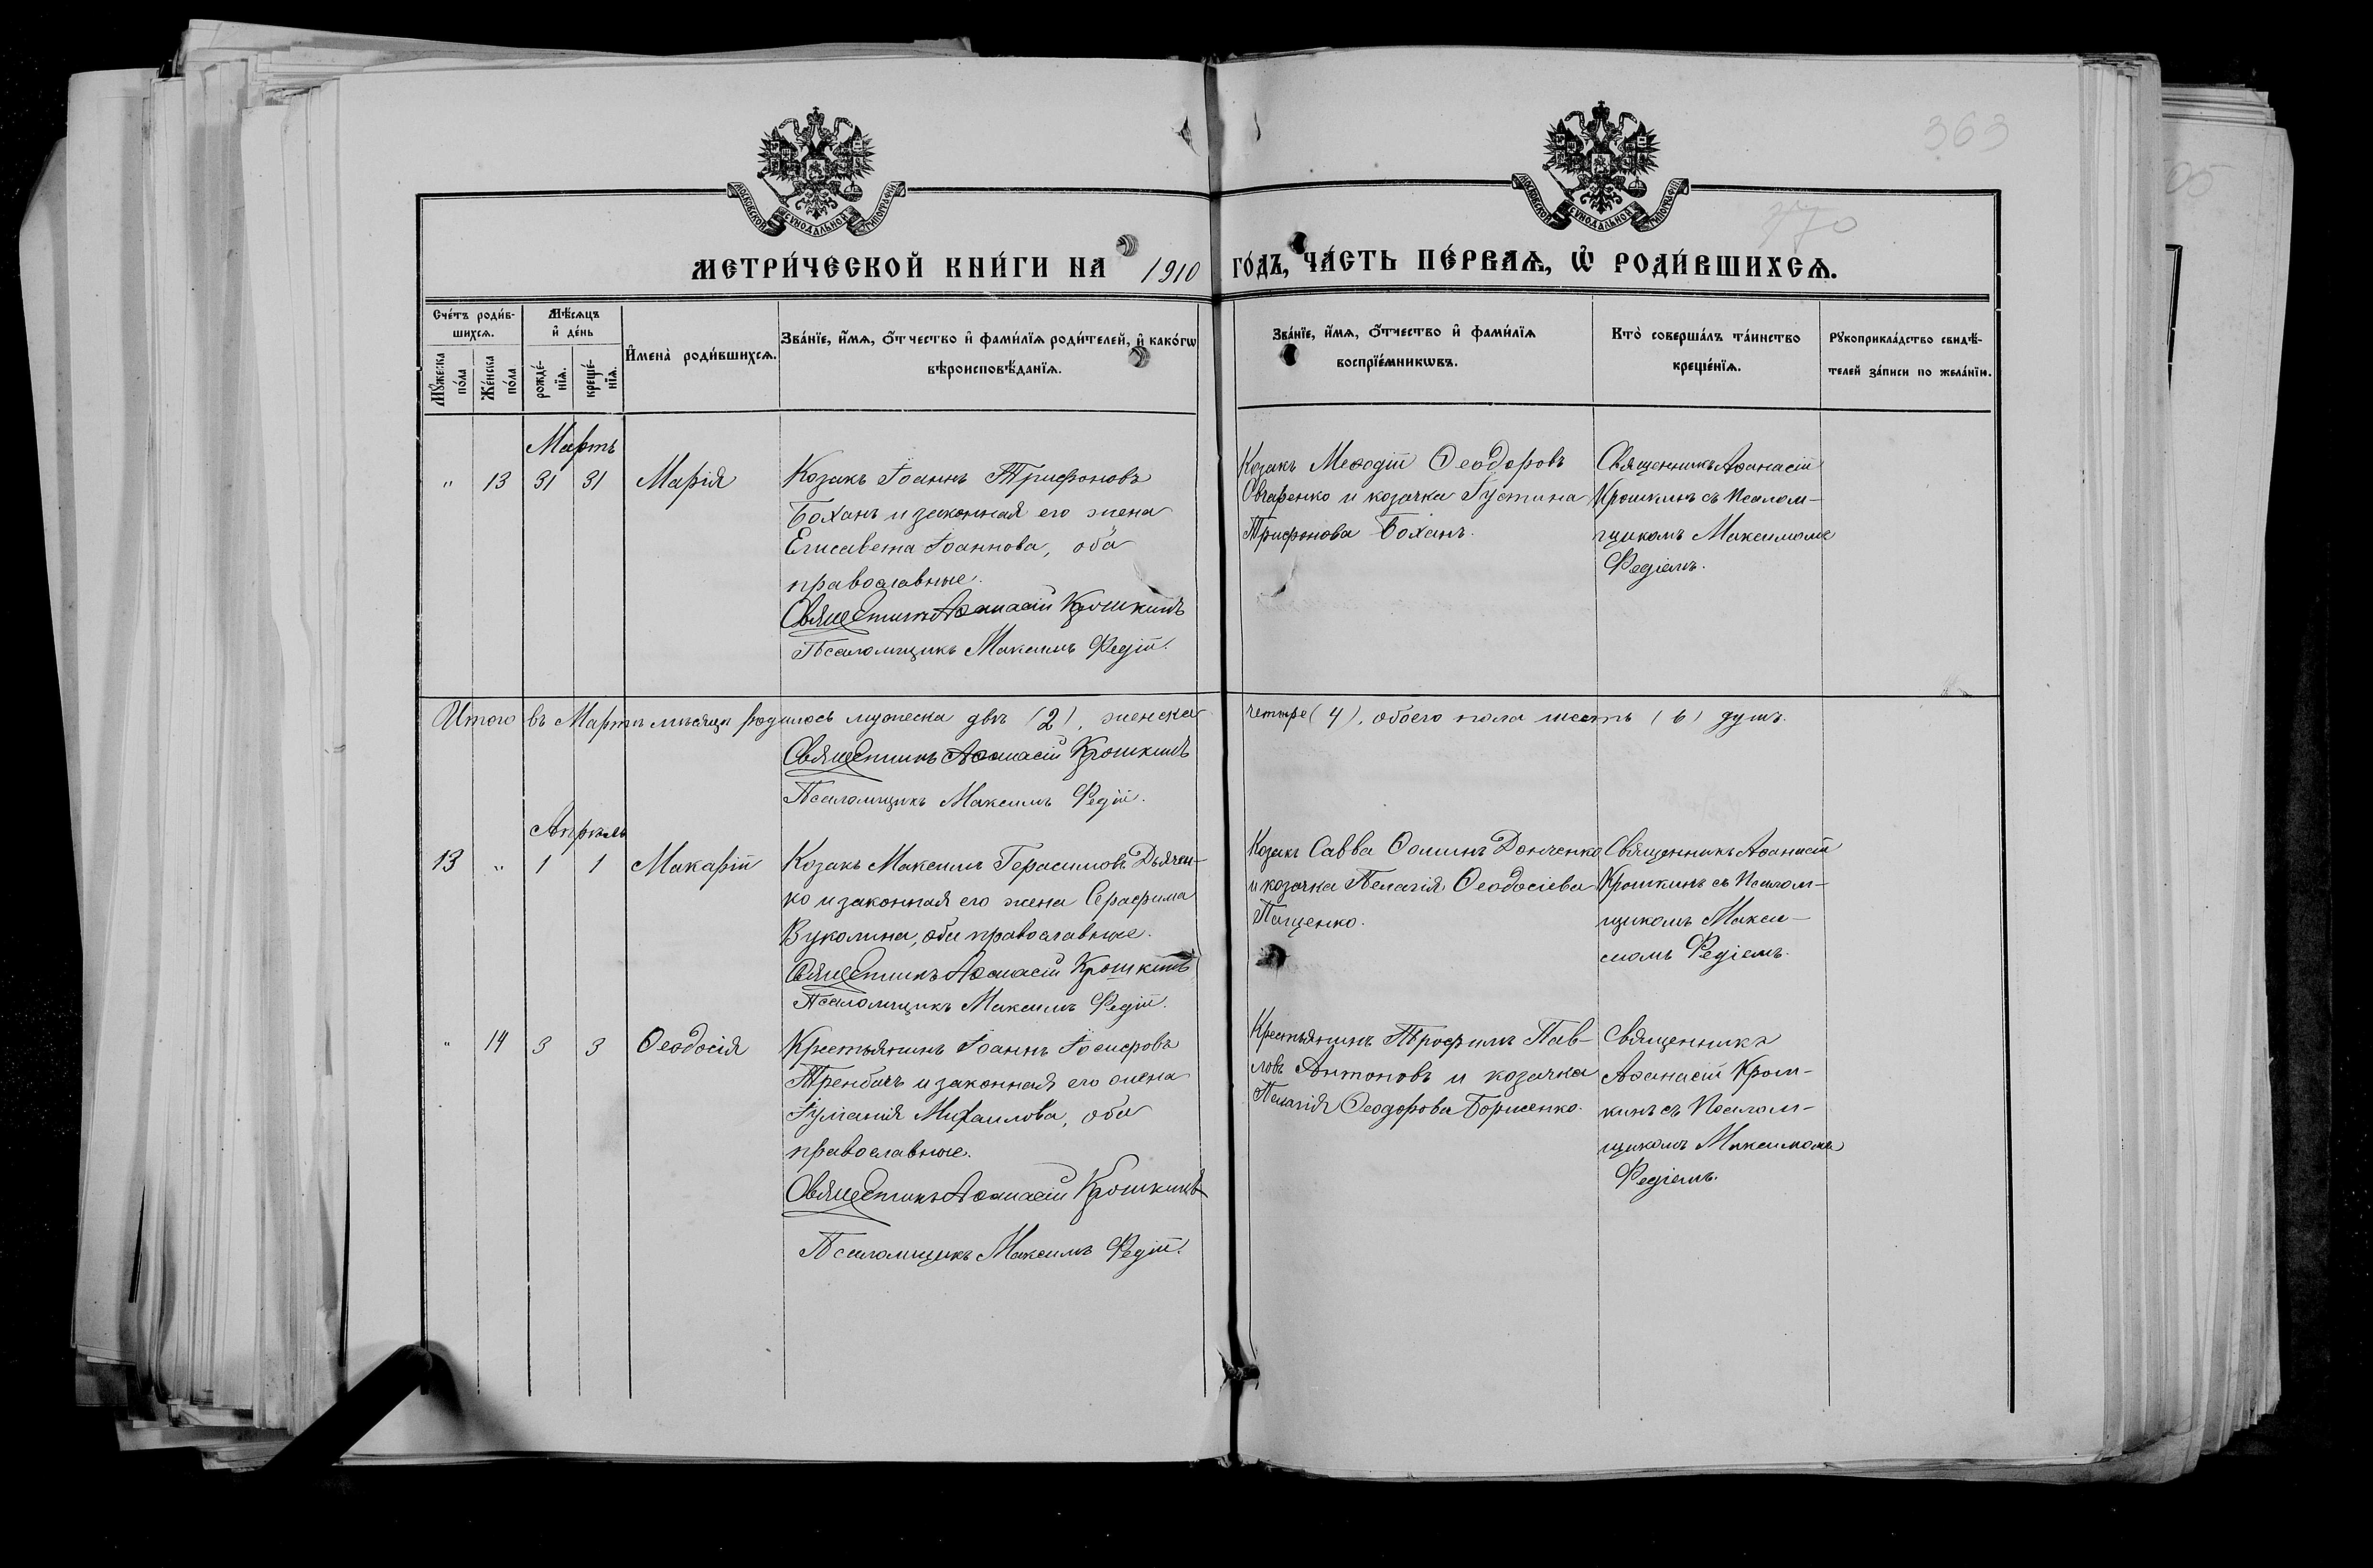 363
370
МОСКОВСКОЙ СѴНОДАЛЬНОЙ ТИПОГРАФІИ
МОСКОВСКОЙ СѴНОДАЛЬНОЙ ТИПОГРАФІИ
МЕТРИ́ЧЕСКОЙ КНИ́ГИ НА 1910 ГО́ДЪ, ЧА́СТЬ ПЕ́РВАѦ, Ѡ҆ РОДИ́ВШИХСѦ.
Сче́тъ роди́в-
шихсѧ.
Мꙋ́жеска
по́ла
Же́нска
по́ла
Мѣ́сѧцъ
и҆ де́нь
рожде́-
нїѧ.
креще́-
нїѧ.
И҆мена̀ роди́вшихсѧ.
Зва́нїе, и҆́мѧ, ѻ҆́тчество и҆ фами́лїѧ роди́телей, и҆ како́гѡ
вѣроисповѣ́данїѧ.
Зва́нїе, и҆́мѧ, ѻ҆́тчество и҆ фами́лїѧ
воспрїе́мникѡвъ.
Кто̀ соверша́лъ та́инство
креще́нїѧ.
Рꙋкоприкла́дство свидѣ́-
телей за́писи по жела́нїю.
Мартъ
" 13 31 31 Марія
Козакъ Іоаннъ Трифоновъ
Боханъ и законная его жена
Елисавета Іоаннова, оба
православные.
Священникъ Аѳанасій Крошкинъ
Псаломщикъ Максимъ Редій.
Козакъ Меѳодій Ѳеодоровъ
Овчаренко и козачка Іустина
Трифонова Боханъ.
Священникъ Аѳанасій
Крошкинъ съ Псалом-
щикомъ Максимомъ
Редіемъ.
Итого въ Мартѣ мѣсяцѣ родилось мужеска два (2), женска четыре (4), обоего пола шесть (6) душъ.
Священникъ Аѳанасій Крошкинъ
Псаломщикъ Максимъ Редій.
Апрѣль
13 " 1 1 Макарій
Козакъ Максимъ Герасимовъ Дьячен-
ко и законная его жена Серафима
Вуколина, оба православные.
Священникъ Аѳанасій Крошкинъ
Псаломщикъ Максимъ Редій.
Козакъ Савва Ѳоминъ Донченко
и козачка Пелагія Ѳеодосіева
Пащенко.
Священникъ Аѳанасій
Крошкинъ съ Псалом-
щикомъ Макси-
момъ Редіемъ.
" 14 3 3 Ѳеодосія
Крестьянинъ Іоаннъ Іосифовъ
Тренбачъ и законная его жена
Іуліанія Михаилова, оба
православные.
Священникъ Аѳанасій Крошкинъ
Псаломщикъ Максимъ Редій.
Крестьянинъ Трофимъ Пав-
ловъ Антоновъ и козачка
Пелагія Ѳеодорова Борисенко.
Священникъ
Аѳанасій Крош-
кинъ съ Псалом-
щикомъ Максимомъ
Редіемъ.